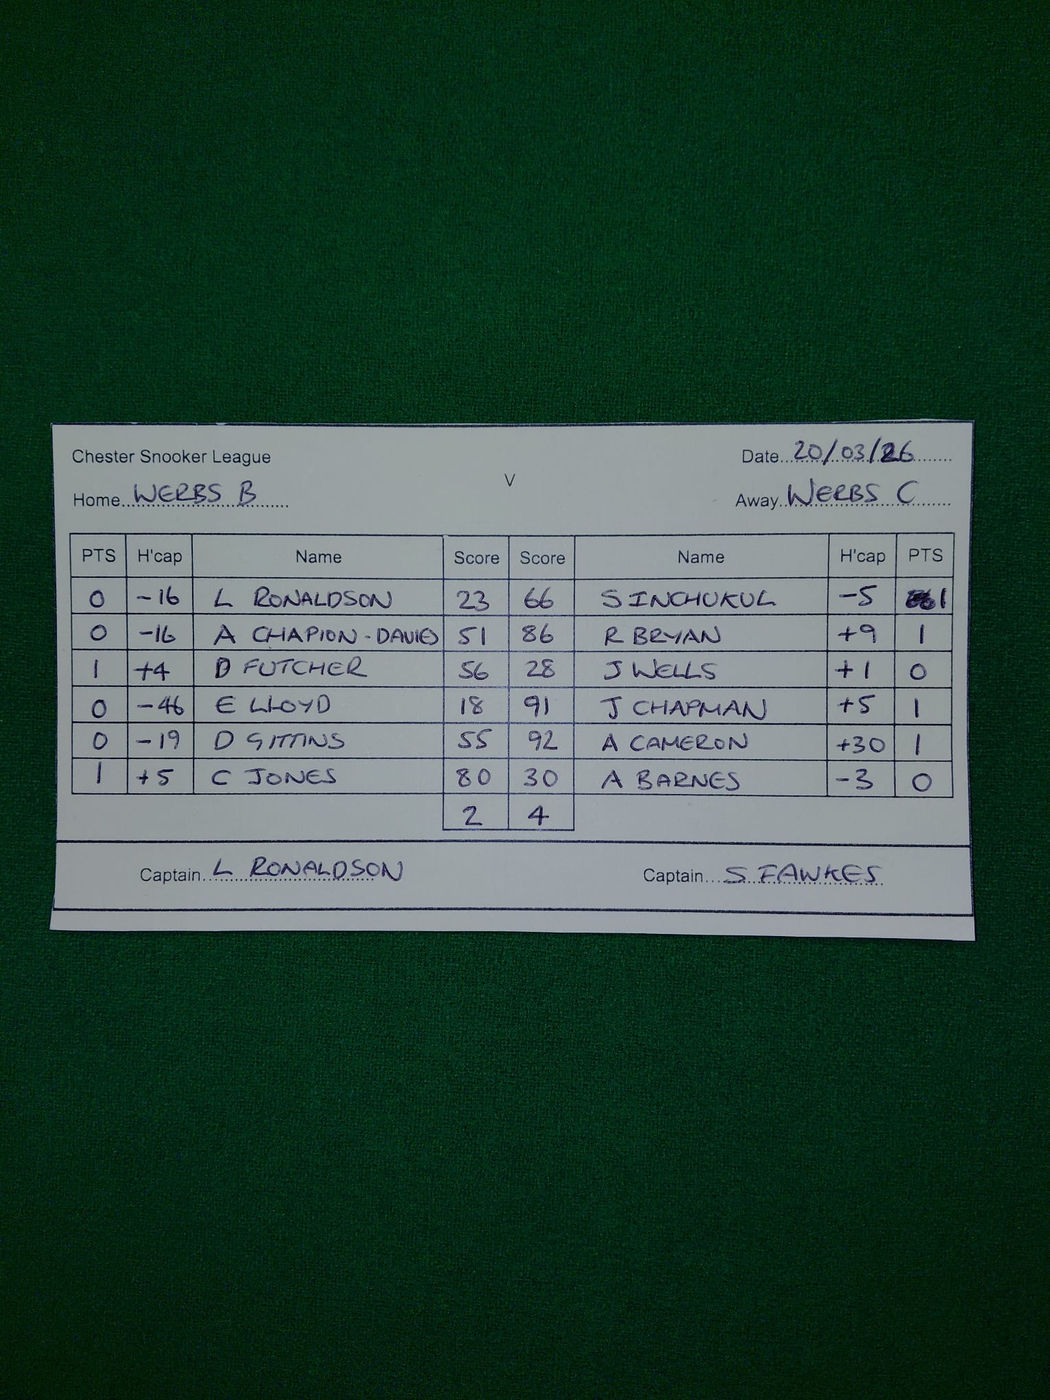 Chester Snooker League
Date 20/03/26
Home WERBS B
V
Away WERBS C
PTS H'cap Name Score Score Name H'cap PTS
0 -16 L RONALDSON 23 66 S INCHUKUL -5 1
0 -16 A CHAPION-DAVIES 51 86 R BRYAN +9 1
1 +4 D FUTCHER 56 28 J WELLS +1 0
0 -46 E LLOYD 18 91 J CHAPMAN +5 1
0 -19 D GITTINS 55 92 A CAMERON +30 1
1 +5 C JONES 80 30 A BARNES -3 0
2 4
Captain L RONALDSON Captain S FAWKES